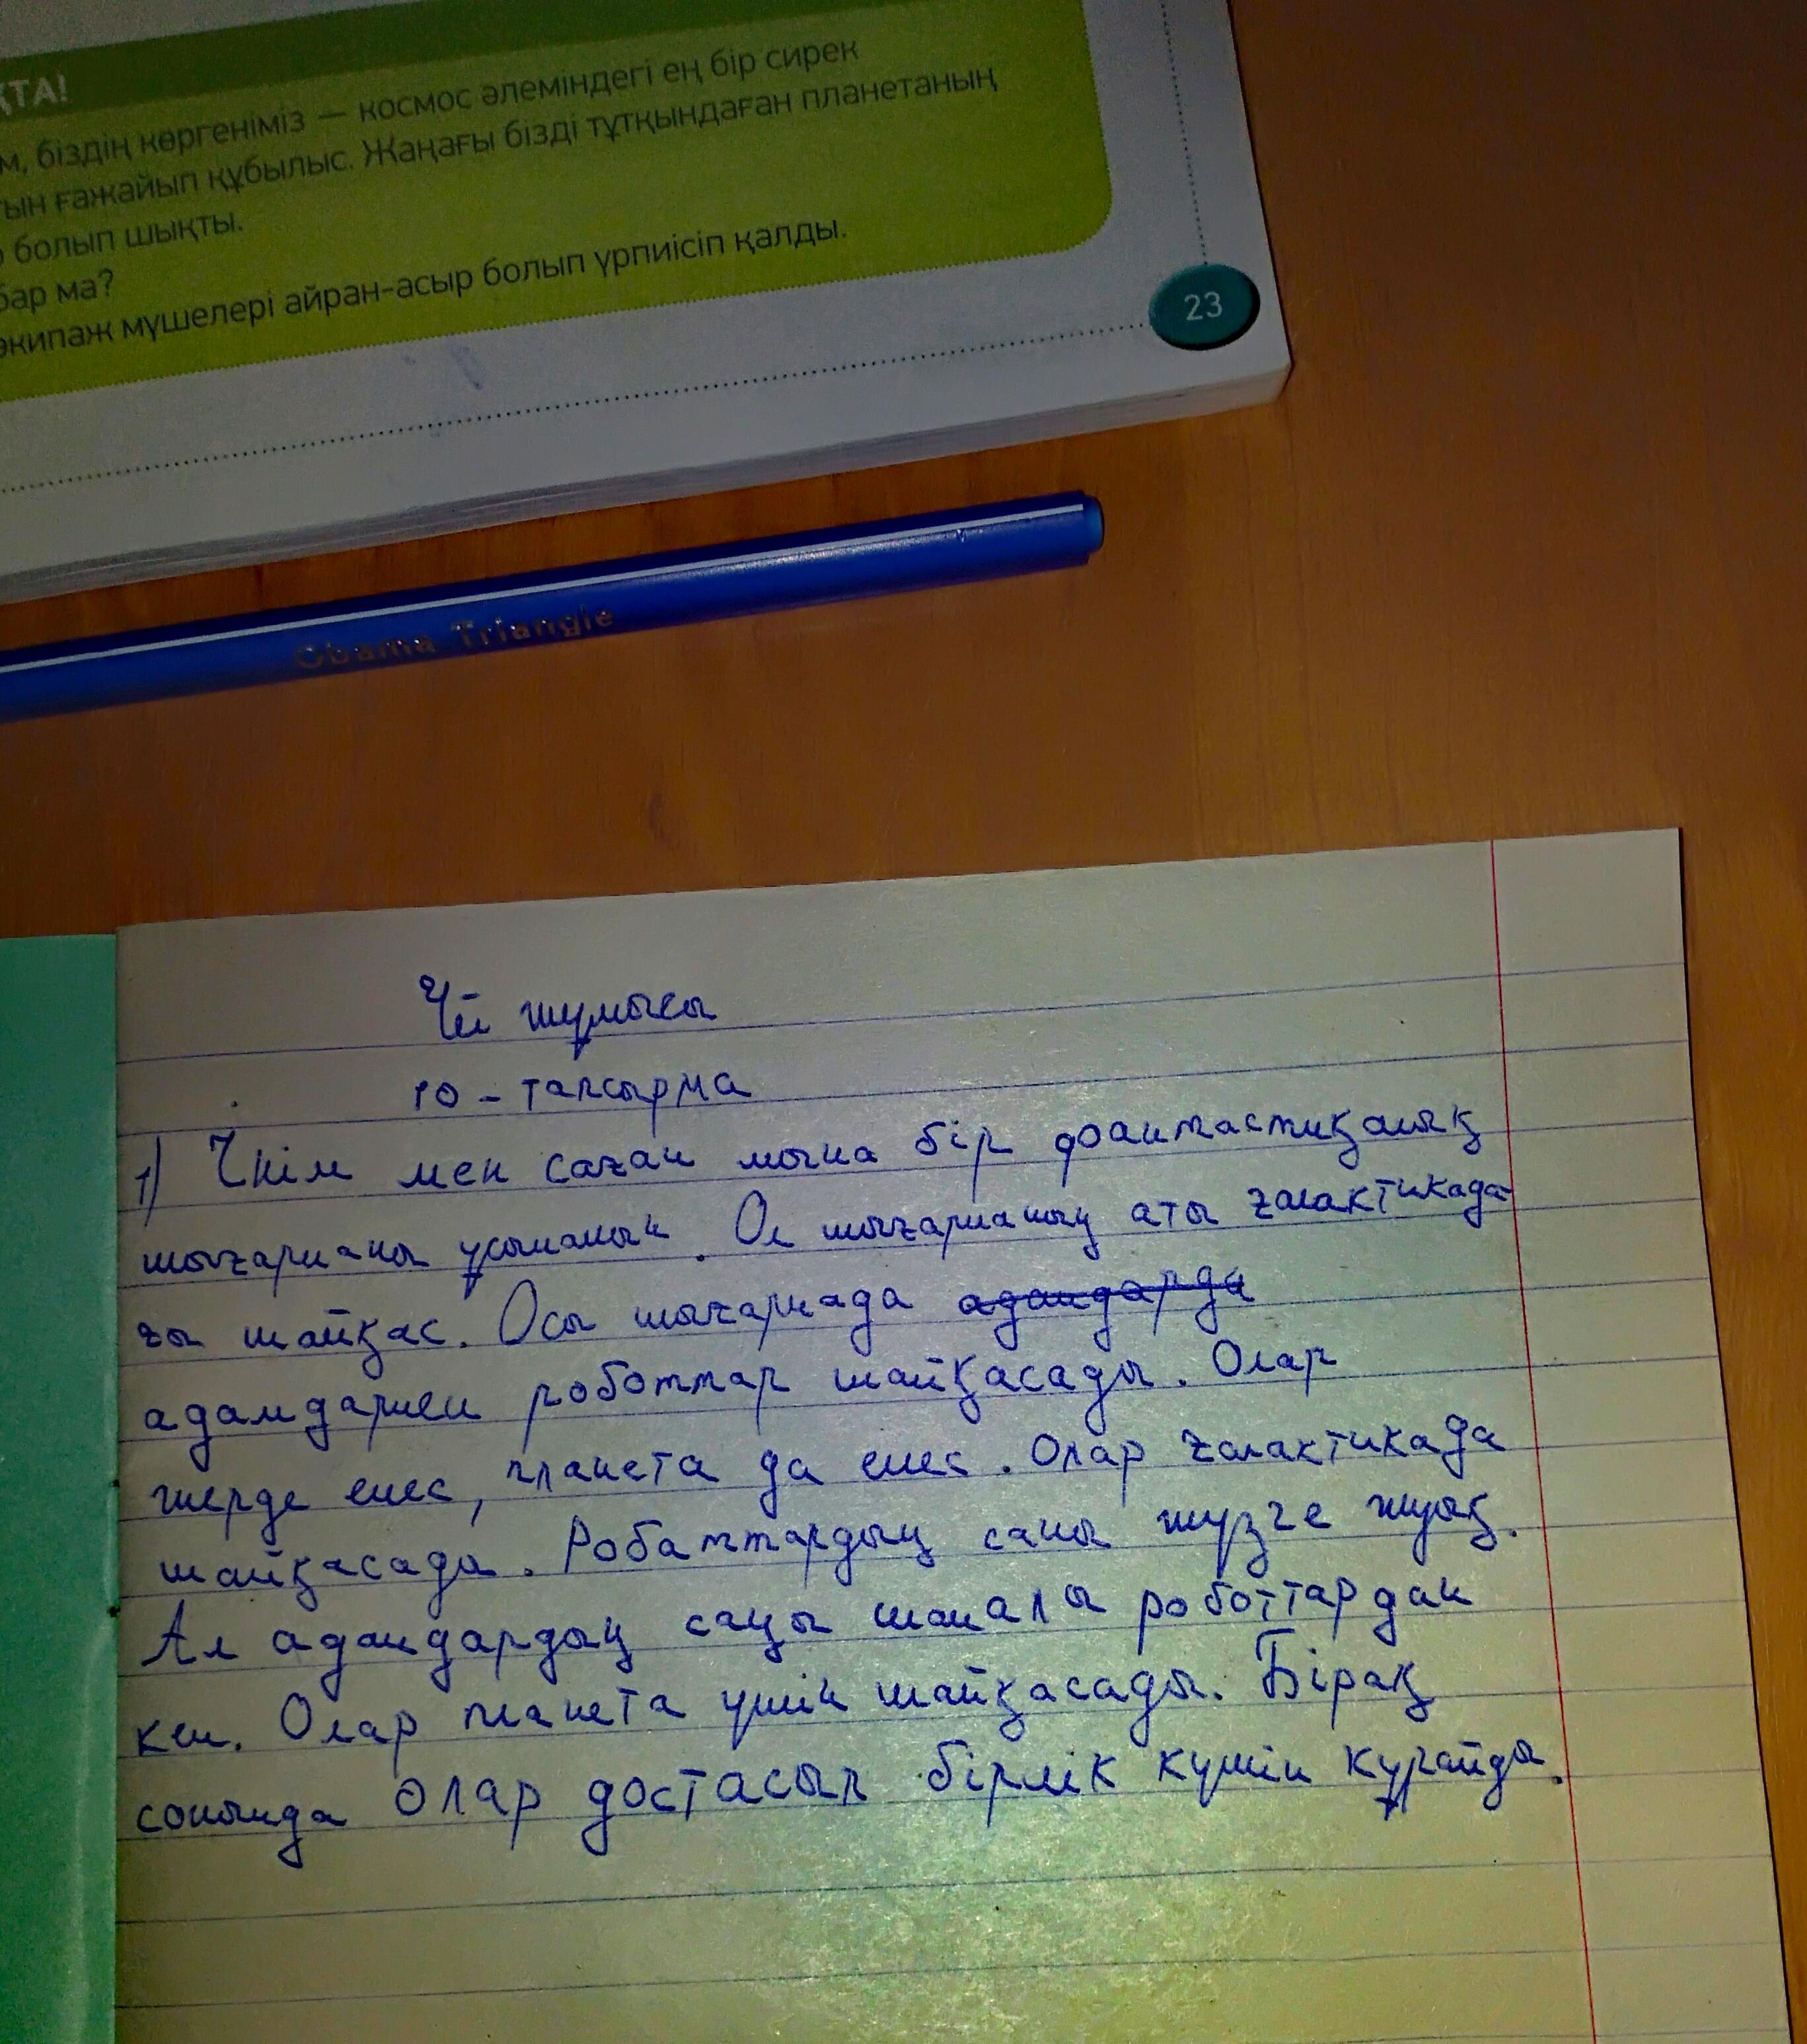 ҚТА!
м, біздің көргеніміз — космос әлеміндегі ең бір сирек
тын ғажайып құбылыс. Жаңағы бізді тұтқындаған планетаның
болып шықты.
бар ма?
экипаж мүшелері айран-асыр болып үрпиісіп қалды.
23
Obama Triangle
Үй жұмысы
10 - тапсырма
1) Інім мен саған мына бір фоантастиқалық
шығарманы ұсынамын. Ол шығарманың аты ғалактикада-
ғы шайқас. Осы шығармада адамдарда
адамдармен роботтар шайқасады. Олар
жерде емес, планета да емес. Олар ғалактикада
шайқасада. Робаттардың саны жүзге жуық.
Ал адамдардың саңы шамалы роботтардан
кем. Олар планета үшін шайқасады. Бірақ
соңында олар достасып бірлік күшін құрайды.